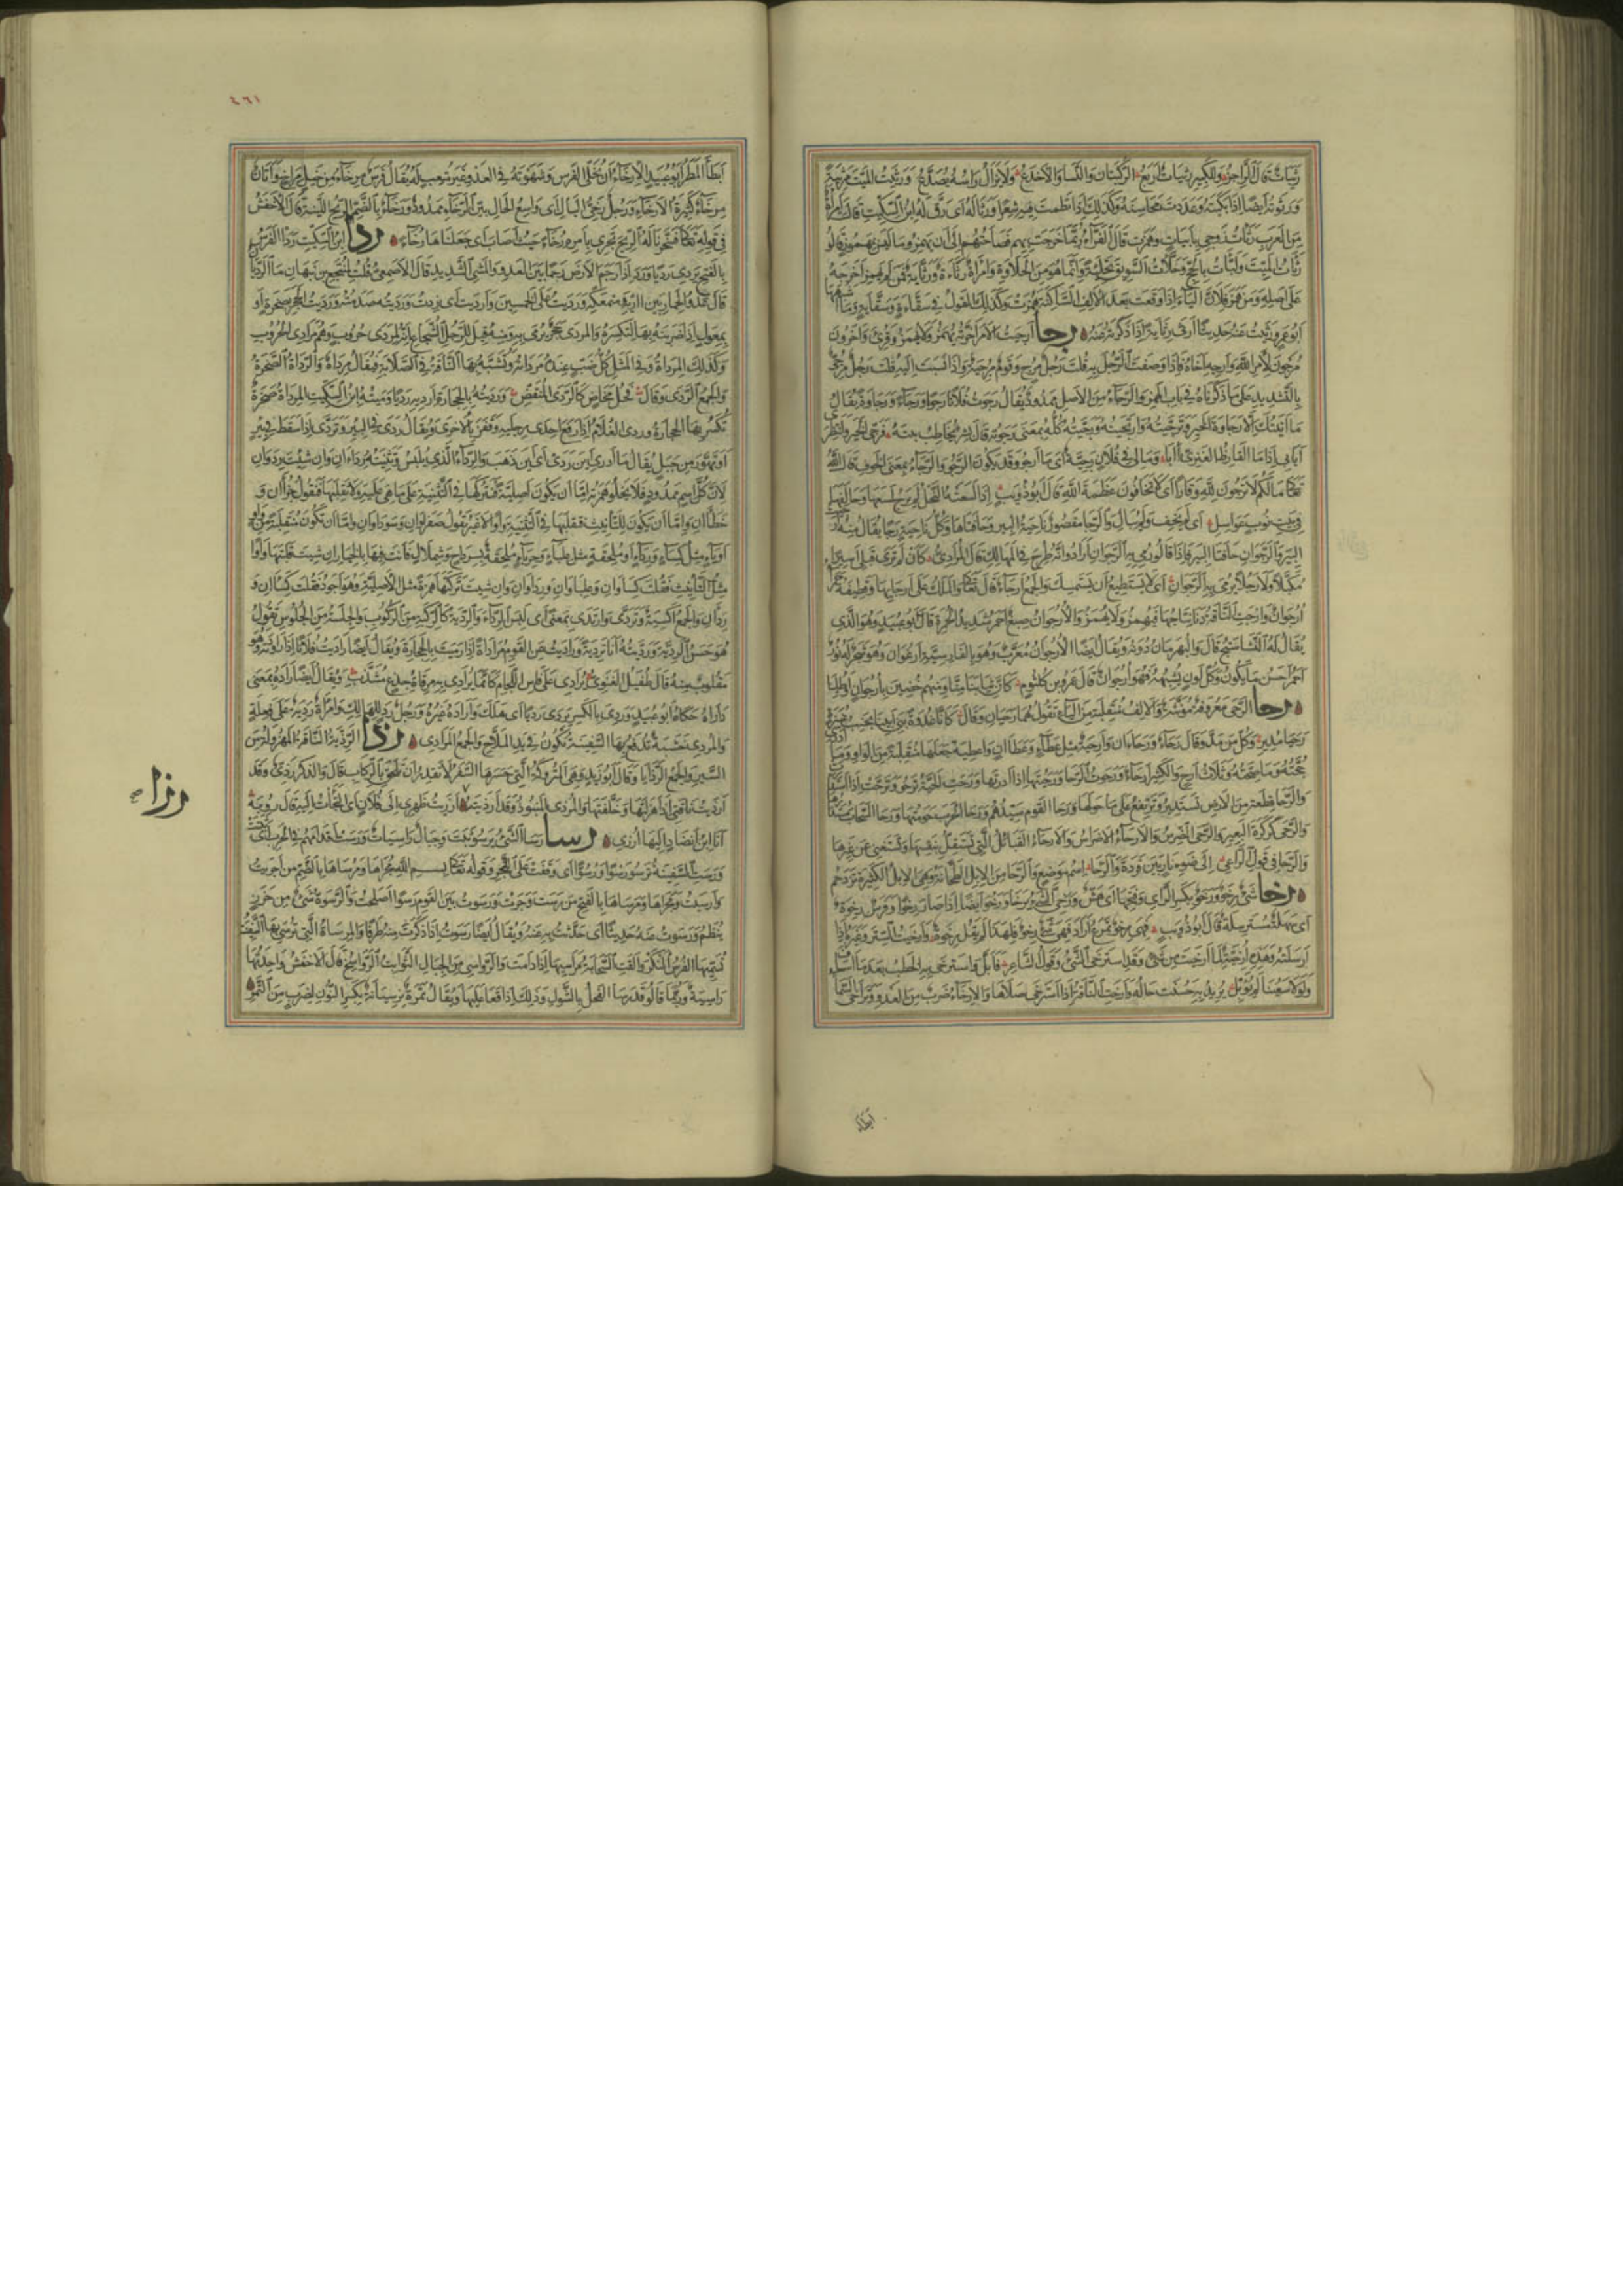 رَثَيَاتٌ قال الراجز وللكبير رثيات اربع الركبتان والنسا والاخدع ولا يزال راسه يصدع ورثيت الميت مرثية
ورثوته ايضا اذا بكيته وعددت محاسنه وكذلك اذا نظمت فيه شعرا ورثى له اى رق له ابن السكيت قالت امراة
من العرب رثات زوجى بابيات وهمزت قال الفراء ربما خرجت بهم فصاحتهم الى ان يهمزوا ما ليس بمهموز قالوا
رثات الميت ولبات بالحج وحلات السويق تحلية وانما هو من الحلاوة وامراة رثاءة ورثاية فمن لم يهمز اخرجه
على اصله ومن همز فلان الياء اذا وقعت بعد الالف الساكنة همزت وكذلك القول فى سقاءة وسقاية وما اشبهها
ابو عمرو رثيت عنه حديثا ارثى رثاية اذا ذكرته عنه رجا ارجيت الامر اخرته يهمز ولا يهمز وقرئ واخرون
مرجون لامر الله وارجه واخاه فاذا وصفت الرجل به قلت رجل مرج وقوم مرجية واذا نسبت اليه قلت رجل مرجى
بالتشديد على ما ذكرناه فى باب الهمز والرجاء من الامل ممدود يقال رجوت فلانا رجوا ورجاء ورجاوة يقال
ما اتيتك الا رجاوة الخير وترجيته وارتجيته ورجيته كله بمعنى رجوته قال بشر يخاطب بنته فرجى الخير وانتظرى
ايابى اذا ما القارظ العنزى ابا وما لى فى فلان رجية اى ما ارجو وقد يكون الرجو والرجاء بمعنى الخوف قال الله
تعالى ما لكم لا ترجون لله وقارا اى لا تخافون عظمة الله قال ابو ذؤيب اذا لسعته النحل لم يرج لسعها وحالفها
فى بيت نوب عواسل اى لم يخف ولم يبال والرجا مقصور ناحية البير وحافتاها وكل ناحية رجا يقال منه
البير والرجوان حافتا البير فاذا قالوا رمى به الرجوان ارادوا انه طرح فى المهالك قال المرادى كان لم ترى قبلى اسيرا
مكبلا ولا رجلا يرمى به الرجوان اى لا يستطيع ان يستمسك والجمع ارجاء قال تعالى والملك على ارجايها وقطيفة حمراء
ارجوان وارجت الناقة دنا نتاجها فيهمز ولا يهمز والارجوان صبغ احمر شديد الحمرة قال ابو عبيد وهو الذى
يقال له النشاستج قال والبهرمان دونه ويقال ايضا الارجوان معرب وهو بالفارسية ارغوان وهو شجر له نور
احمر احسن ما يكون وكل لون يشبهه فهو ارجوان قال عمرو بن كلثوم كان ثيابنا منا ومنهم خضبن بارجوان او طلينا
رحا الرحى معروفة مؤنثة والالف منقلبة من الياء تقول هما رحيان وقال كانا غدوة وبنى ابينا بجنب عنيزة
رحيا مدير وكل من مد قال رحاء ورحاءان وارحية مثل عطاء وعطاءان واعطية جعلها منقلبة من الواو وما ادرى ما
حجته وما صحته وثلاث ارح والكثير ارحاء ورحوت الرحا ورحيتها اذا ادرتها ورحت الحية ترحو وترحت اذا استدارت
والرحا قطعة من الارض تستدير وترتفع على ما حولها ورحا القوم سيدهم ورحا الحرب حومتها ورحا السحاب مستدارها
والرحى كركرة البعير والرحى الضرس والارحاء الاضراس والارحاء القبائل التى تستقل بنفسها وتستغنى عن غيرها
والرحا فى قول الراعى الى ضوء نار بين فردة والرحا اسم موضع والرحا من الابل الطحانة وهى الابل الكثيرة تزدحم
رخا شئ رخو ورخو بكسر الراى وفتحها اى هش ورخى الشئ يرخا ورخو ايضا اذا صار رخوا وفرس رخوة
اى سهلة مسترسلة قال ابو ذؤيب فهى رخو تمزع اراد فهى شئ رخو فلهذا لم يقل رخوة وارخيت الستر وغيره اذا
ارسلته وهذه ارخية لما ارخيت من شئ وقد استرخى الشئ وقول الشاعر فابل واسترخى به الخطب بعد ما اساف
ولولا سعينا لم يؤبل يريد به حسنت حاله وارخت الناقة اذا استرخى صلاها والارخاء ضرب من العدو وتراخى السماء
ابطا
٤٦١
ابطا المطر ابو عبيد الارخاء ان تخلى الفرس وشهوته فى العدو غير متعب له يقال فرس مرخاء من خيل مراخ واتان
مرخاء كثيرة الارخاء ورجل رخى البال اى واسع الحال بين الرخاء ممدود ورخاء بالضم الريح اللينة قال الاخفش
فى قوله تعالى فسخرنا له الريح تجرى بامره رخاء حيث اصاب اى جعلناها رخاء ردا ابن السكيت ردا الفرس
بالفتح يردى رديا ورديانا اذا رجم الارض رجما بين العدو والمشى الشديد قال الاصمعى قلت لمنتجع بن نبهان ما الرديان
قال عدو الحمار بين اريه ومتمعكه ورديت على الخمسين وارديت اى زدت ورديته صدمته ورديت الحجر بصخرة او
بمعول اذا ضربته بها لتكسره والمردى حجر يرمى به ومنه قيل للرجل الشجاع انه لمردى حروب وهم مرادى الحروب
وكذلك المرداة وفى المثل كل ضب عنده مرداته وتشبه بها الناقة فى الصلابة فيقال مرداة والرداة الصخرة
والجمع الردى وقال فحل مخاض كالردى المنقض ورديته بالحجارة ارديه رديا رميته ابن السكيت المرداة صخرة
تكسر بها الحجارة وردى الغلام اذا رفع احدى رجليه وقفز بالاخرى ويقال ردى فى البير وتردى اذا سقط فى بير
او تهور من جبل يقال ما ادرى اين ردى اى اين ذهب والرداء الذى يلبس وتثنيته رداءان وان شيت رداوان
لان كل اسم ممدود فلا يخلو همزته اما ان يكون اصلية فتتركها فى التثنية على ما هى عليه ولا تقلبها فتقول جزاان و
خطاان واما ان يكون للتانيث فتقلبها فى التثنية واوا لا غير تقول صفراوان وسوداوان واما ان تكون منقلبة من واو
او ياء مثل كساء ورداء او ملحقة مثل علباء وحرباء ملحقة بسرداح وشملال فانت فيها بالخيار ان شيت قلبتها واوا
مثل التانيث فقلت كساوان وعلباوان ورداوان وان شيت تركتها همزة مثل الاصلية وهو اجود فقلت كساان و
رداان والجمع اكسية وتردى وارتدى بمعنى اى لبس الرداء والردية كالركبة من الركوب والجلسة من الجلوس تقول
هو حسن الردية ورديته انا تردية وراديت عن القوم مراداة اذا رميت بالحجارة ويقال ايضا راديت فلانا اذا راودته وهو
مقلوب منه قال طفيل الغنوى يرادى على فاس اللجام كانما يرادى به مرقاة جذع مشذب ويقال ايضا راداه بمعنى
داراه حكاه ابو عبيد وردى بالكسر يردى ردى اى هلك وارداه غيره ورجل رد للهالك وامراة ردية على فعلة
والمردى خشبة تدفع بها السفينة تكون فى يد الملاح والجمع المرادى رذا الرذية الناقة المهزولة من
السير والجمع الرذايا وقال ابو زيد وهى المتروكة التى حسرها السفر لا تقدر ان تلحق بالركاب قال والذكر رذى وقد
ارذيت ناقتى اذا هزلتها وخلفتها والمرذى المنبوذ وقد ارذيته ارزيت ظهرى الى فلان اى التجات اليه قال رؤبة
انا ابن انضاد اليها ارزى رسا رسا الشئ يرسو ثبت وجبال راسيات ورست اقدامهم فى الحرب اى ثبتت
ورست السفينة ترسو رسوا ورسوا اى وقفت على اللنجر وقوله تعالى بسم الله مجراها ومرساها بالضم من اجريت
وارسيت ومجراها ومرساها بالفتح من رست وجرت ورسوت بين القوم رسوا اصلحت والرسوة شئ من خرز
ينظم ورسوت عنه حديثا اى حدثت به عنه ويقال ايضا رسوت اذا ذكرت منه طرفا والمرساة التى ترسى بها السفينة
تسميها الفرس لنكر والقت السحابة مراسيها اذا دامت والرواسى من الجبال الثوابت الرواسخ قال الاخفش واحدتها
راسية وربما قالوا قد رسا الفحل بالشول وذلك اذا قعا عليها ويقال تمرة نرسيانة بكسر النون لضرب من التمر
رزا